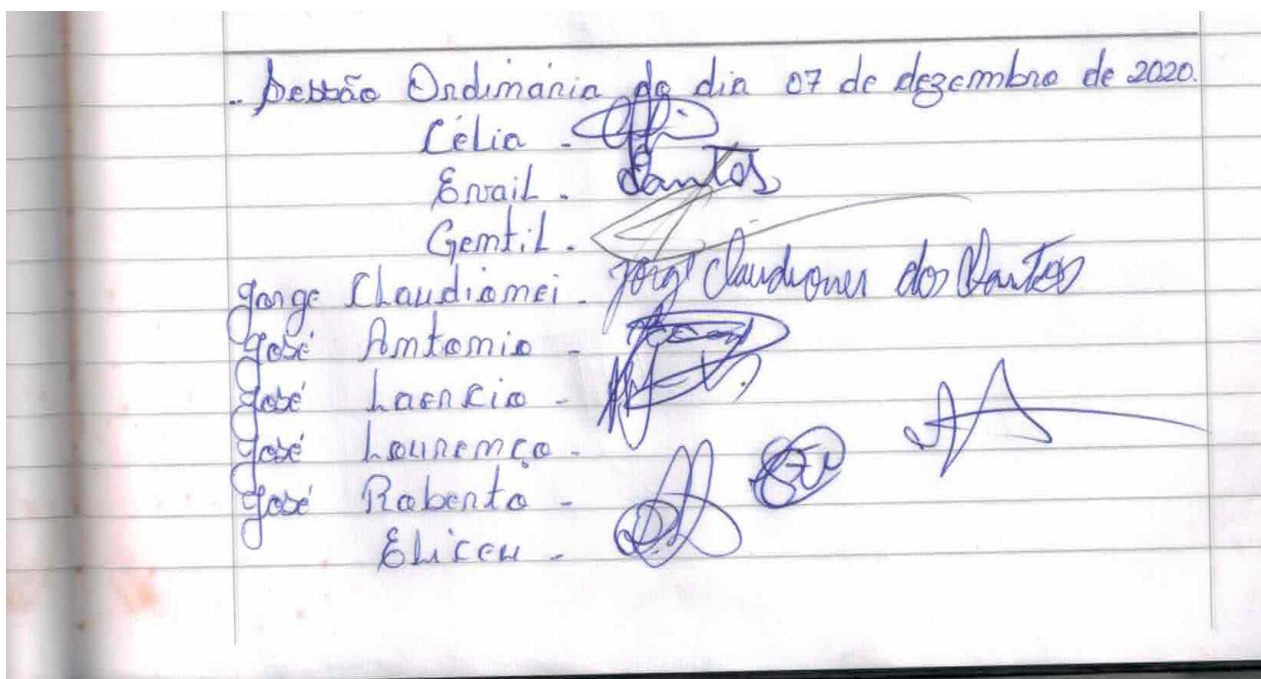 .. Sessão Ordinária do dia 07 de dezembro de 2020.
Célia -
Ervail - Santos
Gentil -
Jorge Claudionei - Jorge Claudionei dos Santos
José Antonio -
José Laercio -
José Lourenço -
José Roberto -
Eliceu -